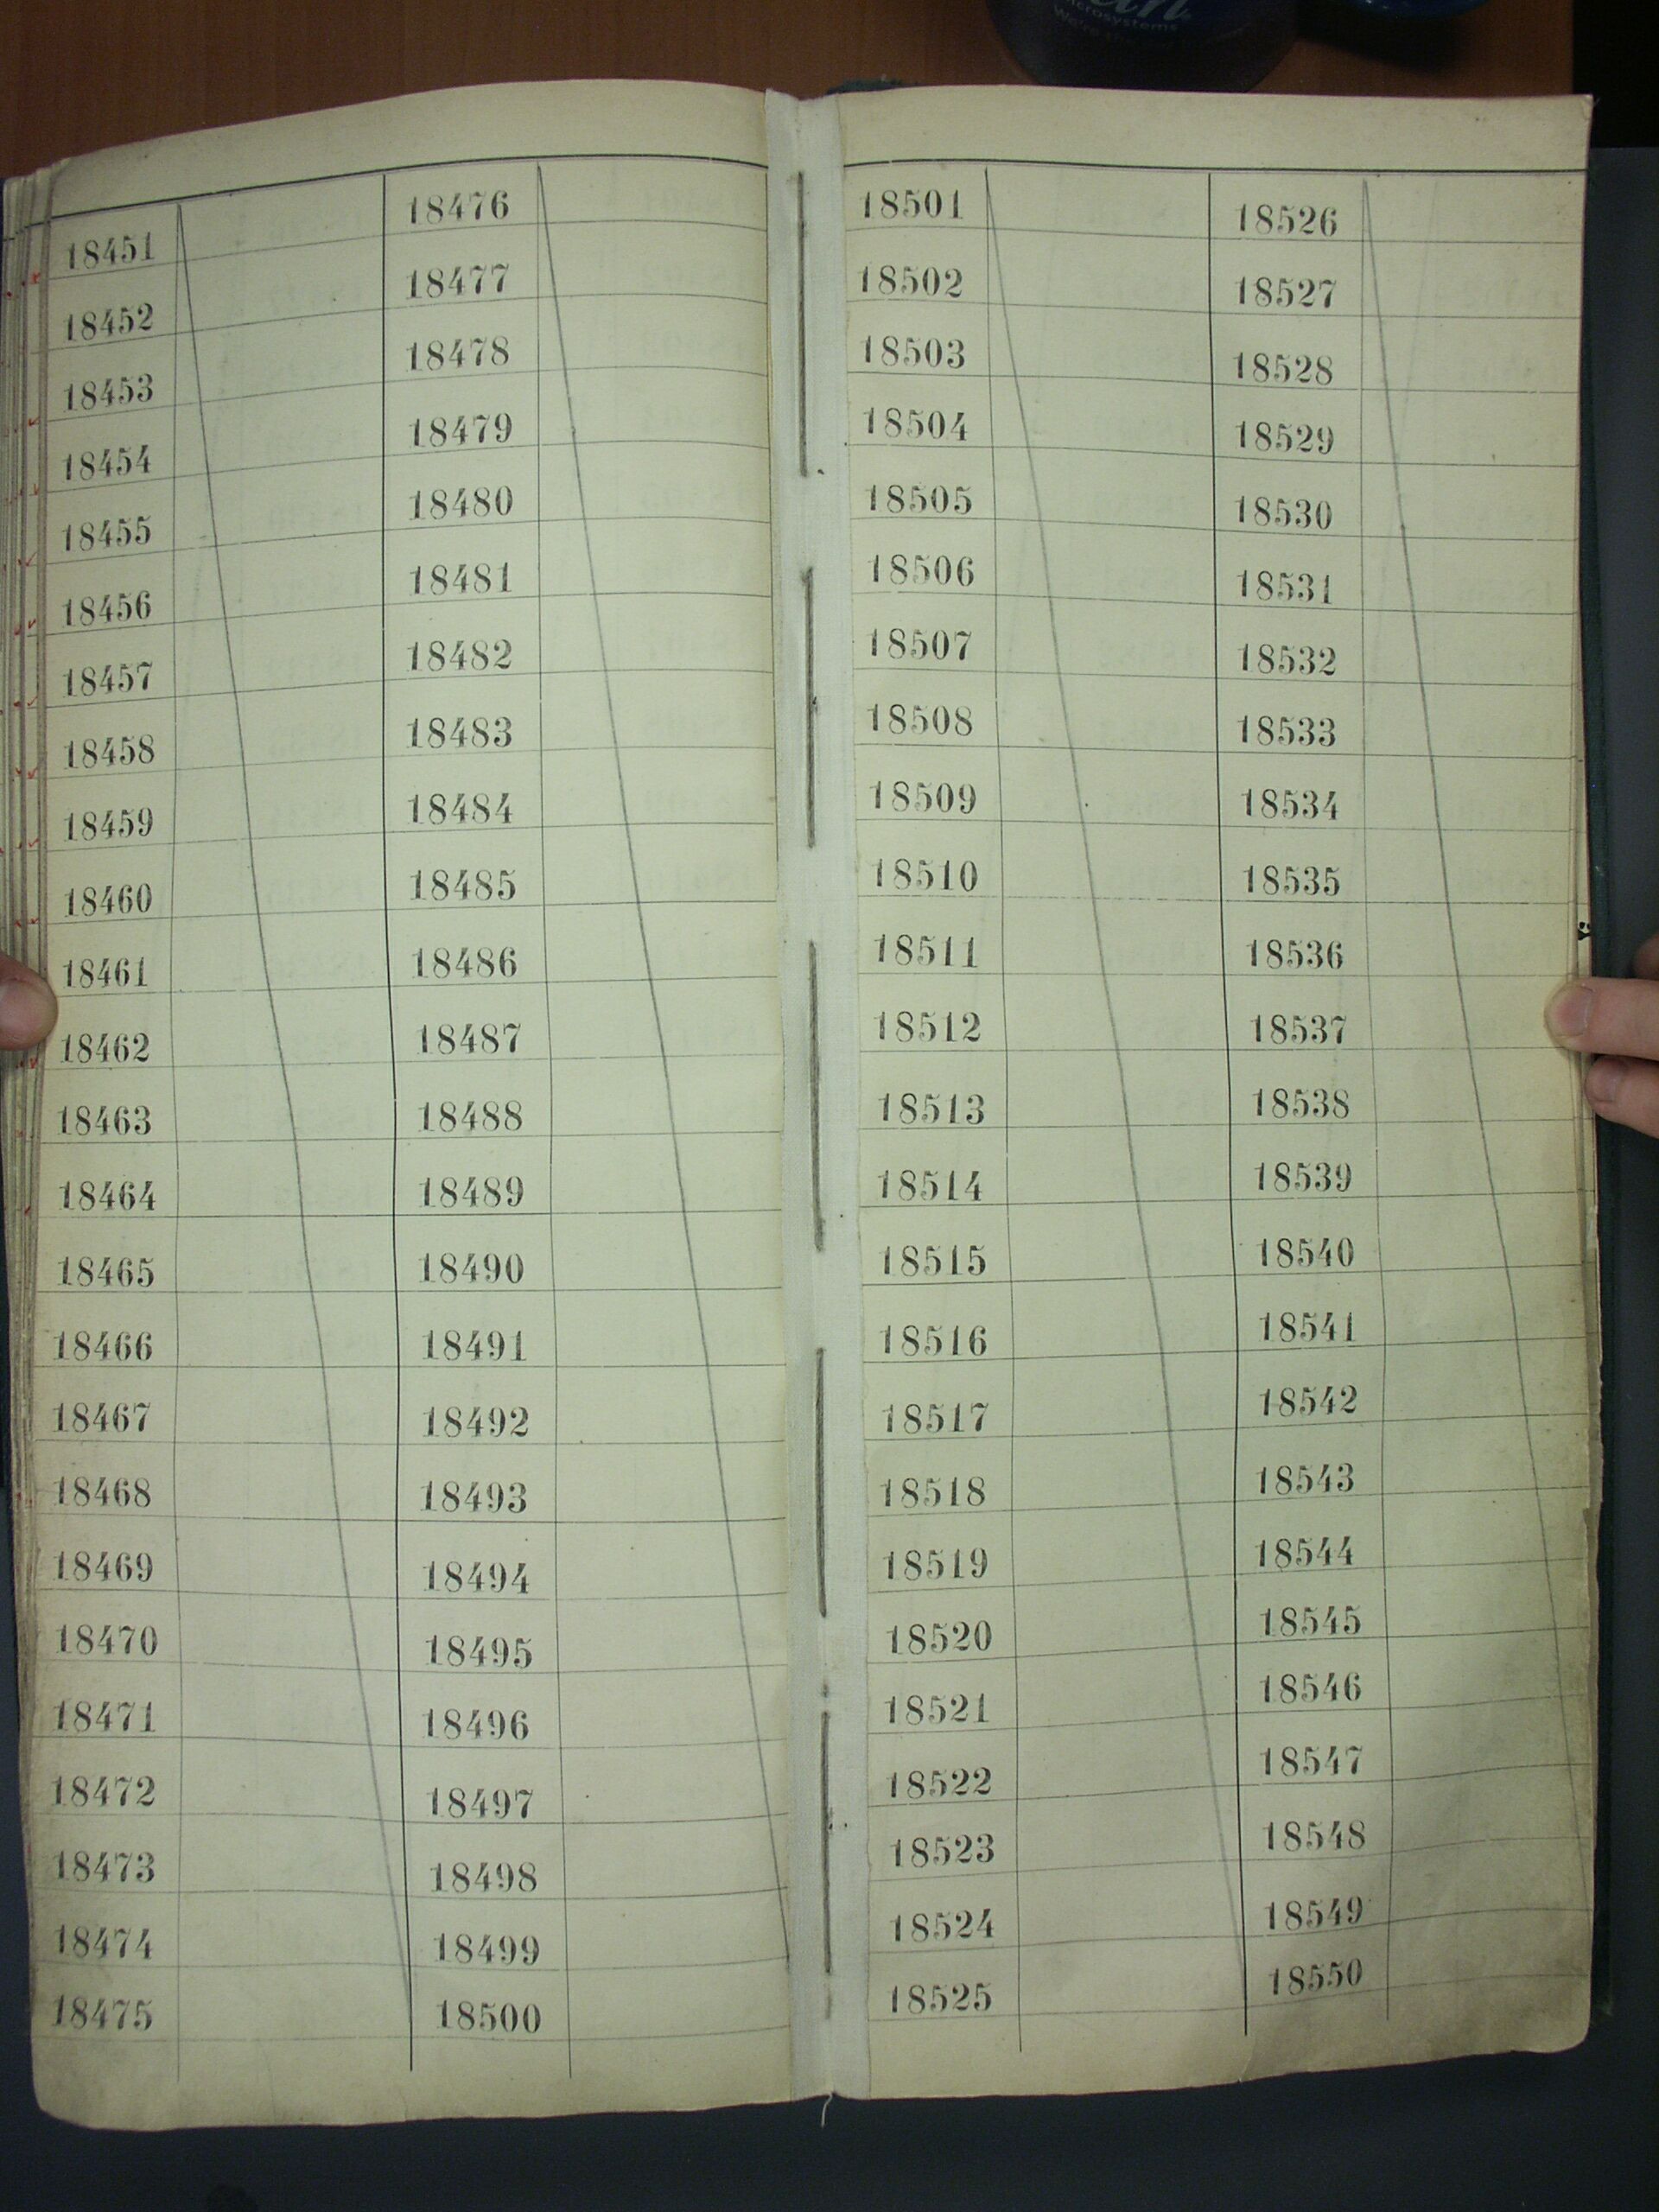 18451
18452
18453
18454
18455
18456
18457
18458
18459
18460
18461
18462
18463
18464
18465
18466
18467
18468
18469
18470
18471
18472
18473
18474
18475
18476
18477
18478
18479
18480
18481
18482
18483
18484
18485
18486
18487
18488
18489
18490
18491
18492
18493
18494
18495
18496
18497
18498
18499
18500
18501
18502
18503
18504
18505
18506
18507
18508
18509
18510
18511
18512
18513
18514
18515
18516
18517
18518
18519
18520
18521
18522
18523
18524
18525
18526
18527
18528
18529
18530
18531
18532
18533
18534
18535
18536
18537
18538
18539
18540
18541
18542
18543
18544
18545
18546
18547
18548
18549
18550